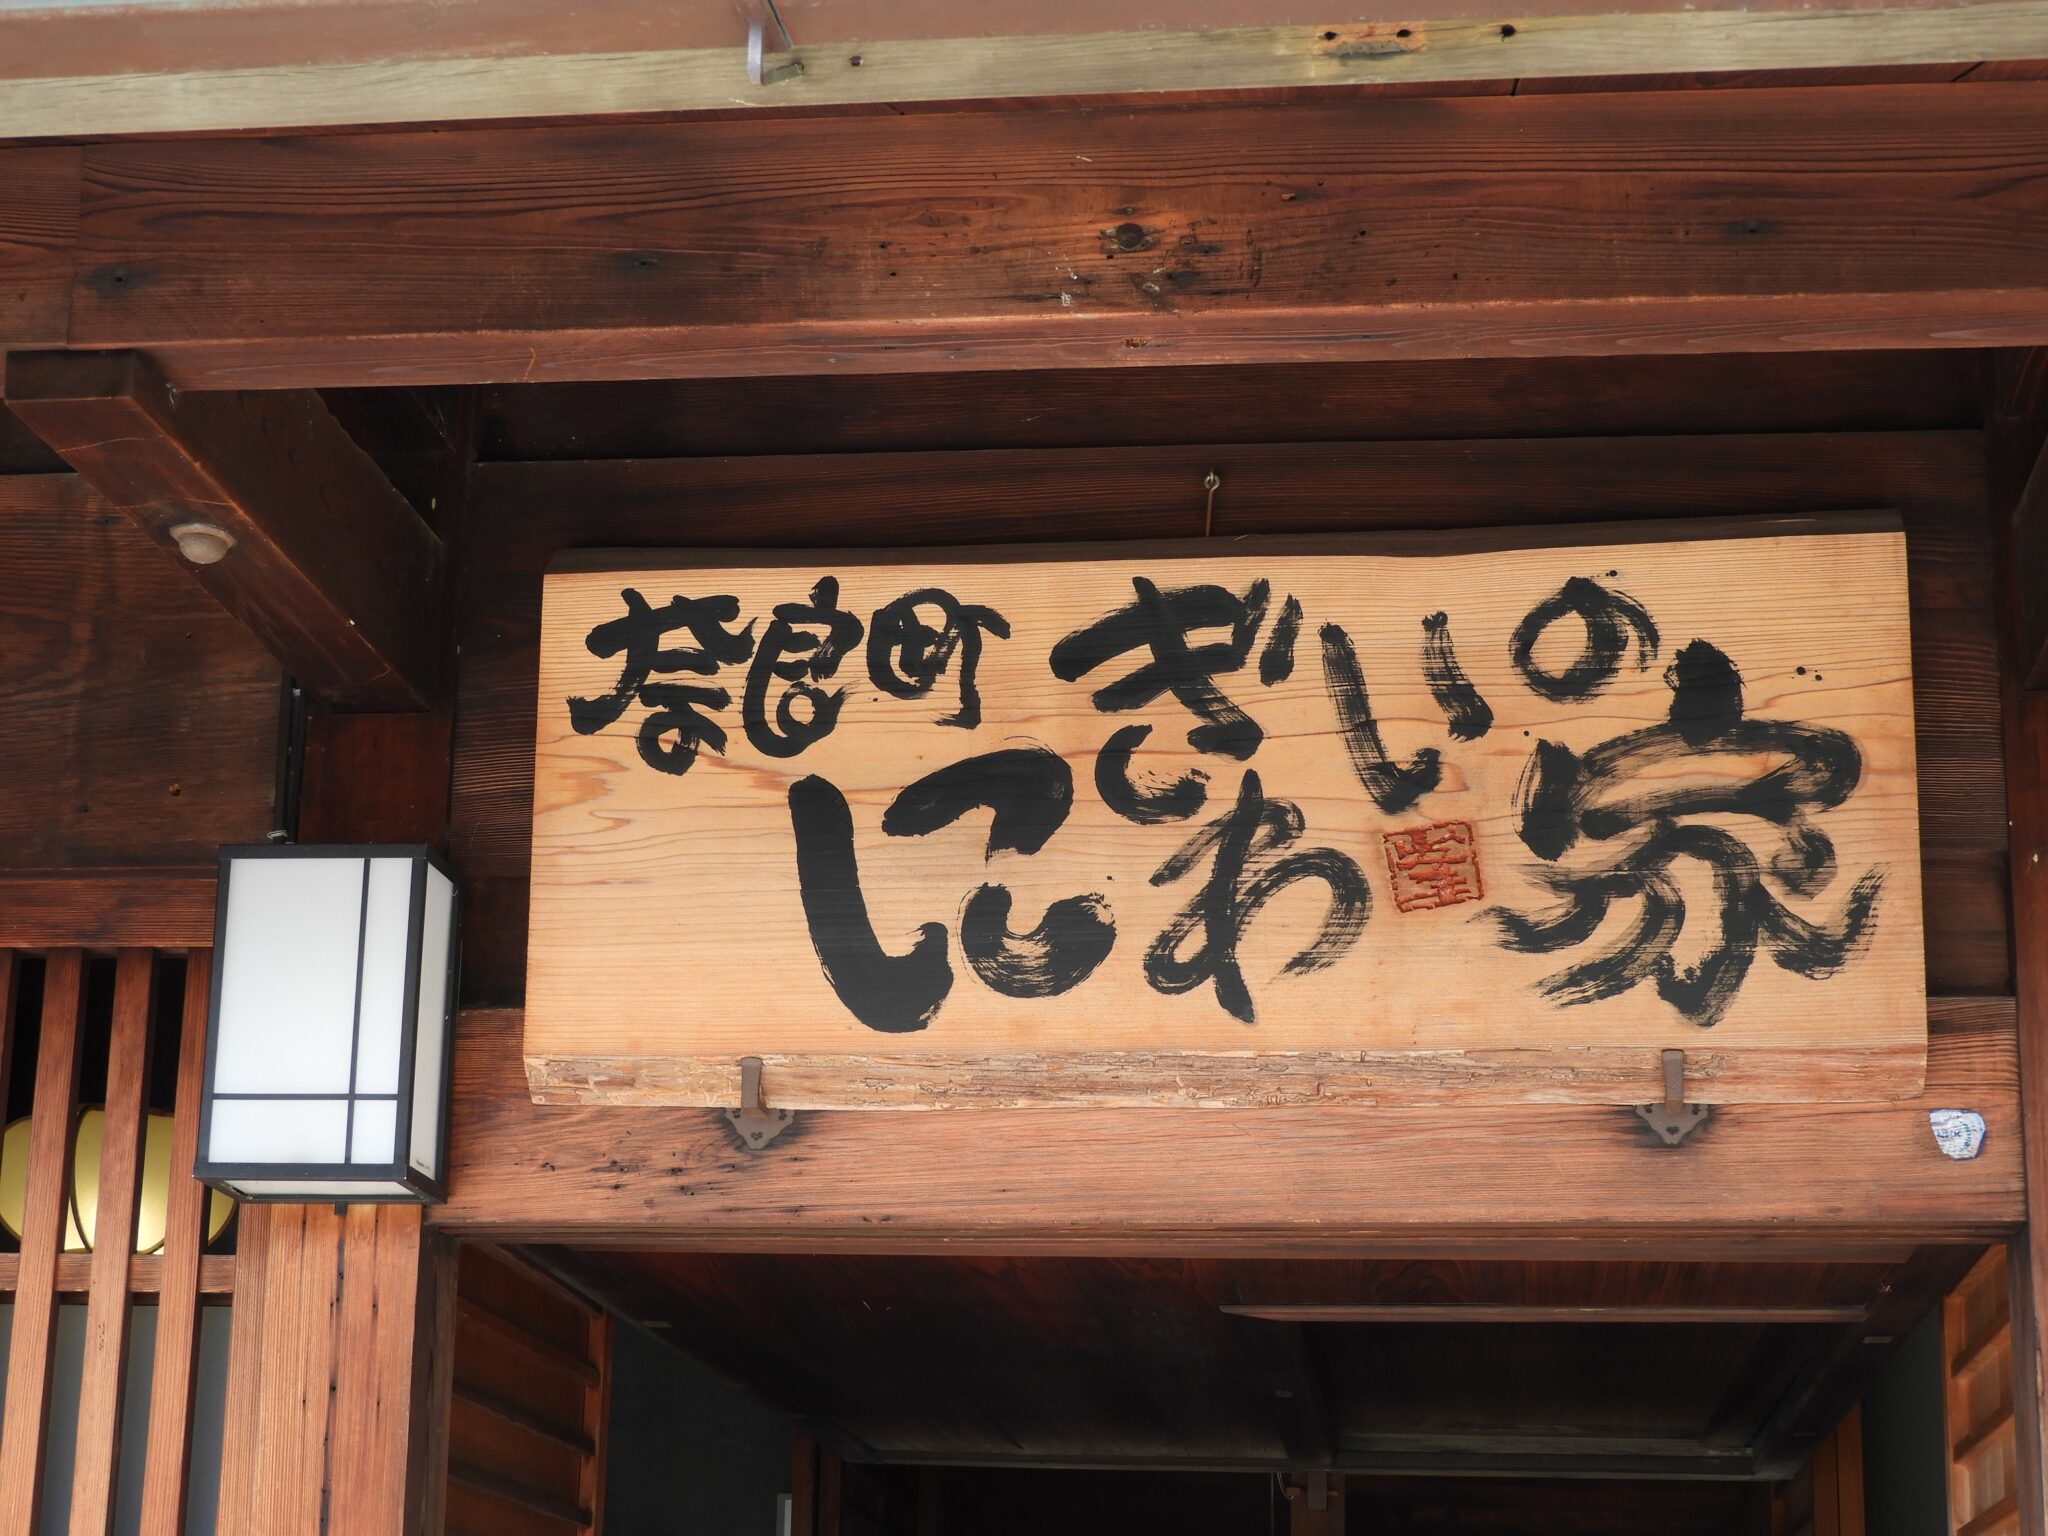 奈良町
にぎわいの家